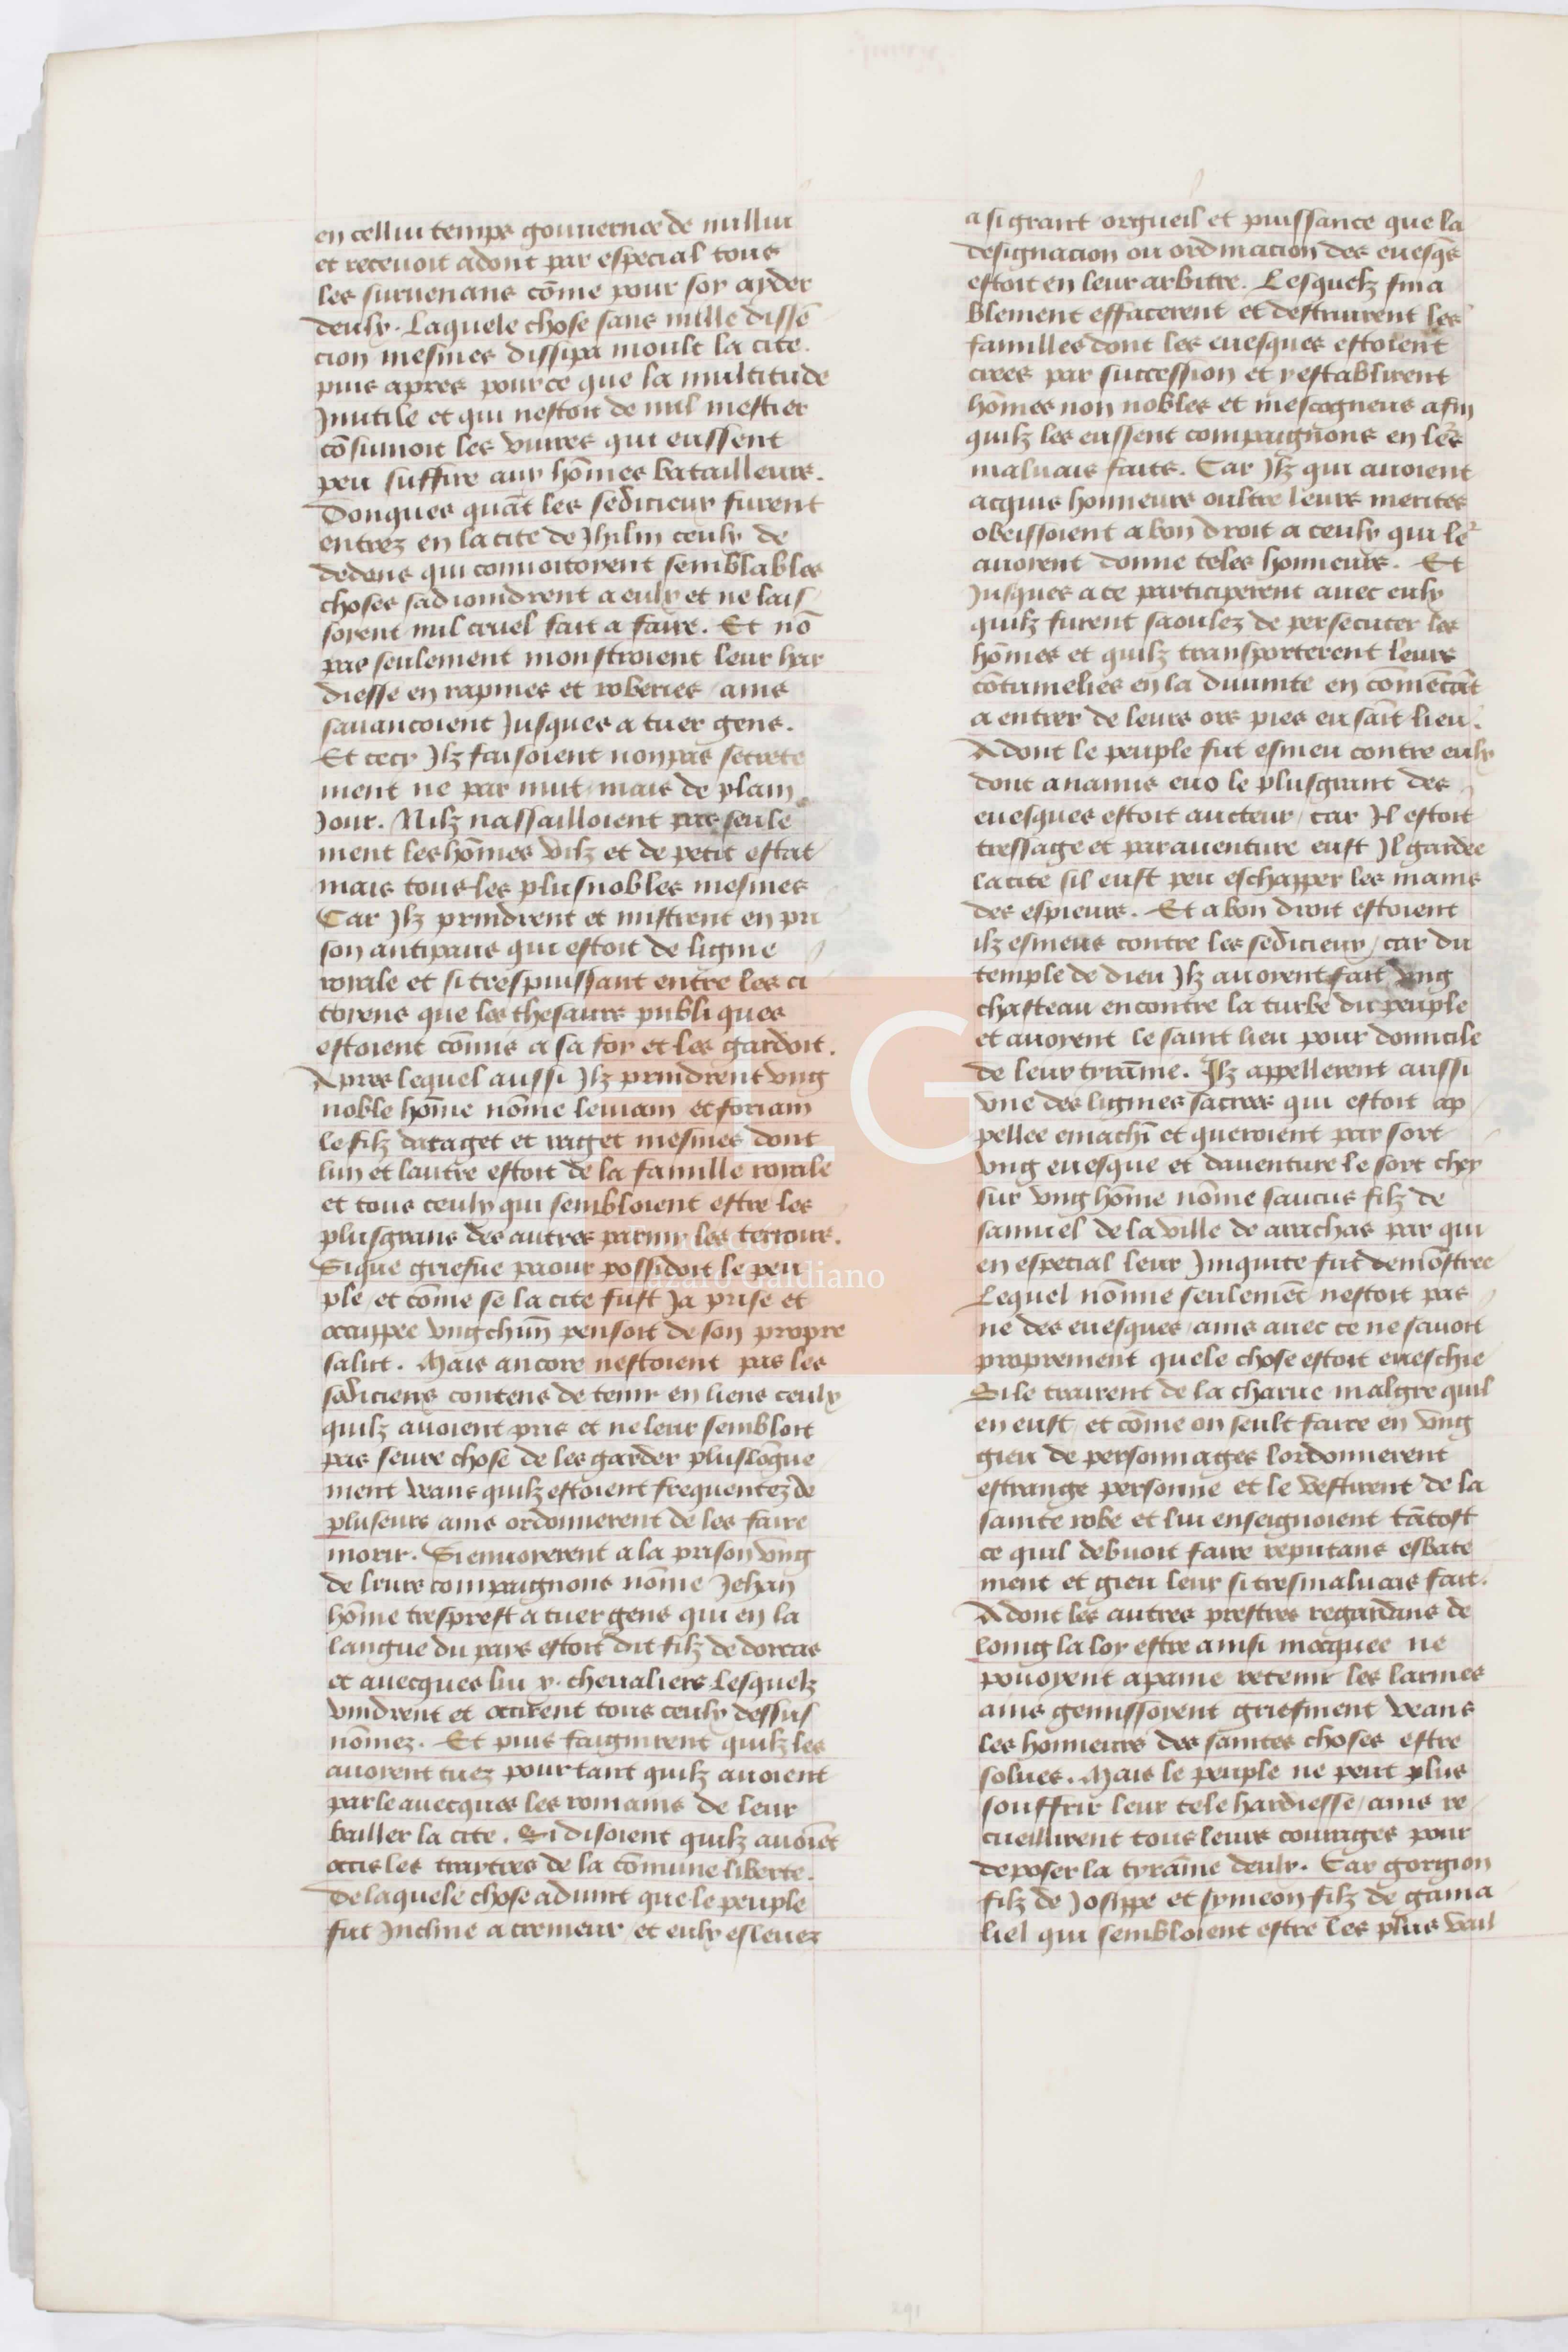 en cellui temps gouuernee de nullui
et receuoit adont par especial tous
les suruenans cõme pour soy ayder
deulx. Laquele chose sans nulle dissẽ
cion mesmes dissipa moult la cite.
puis apres pource que la multitude
Inutile et qui nestoit de nul mestier
cõsumoit les viures qui eussent
peu suffire aux hõmes batailleurs.
Donques quãt les sedicieux furent
entrez en la cite de Jhrlm ceulx de
dedens qui conuoitoyent semblables
choses sadioindrent a eulx et ne lais
soyent nul cruel fait a faire. Et nõ
pas seulement monstroient leur har
diesse en rapines et roberies / ains
sauancoient Jusques a tuer gens.
Et cecy Jlz faisoient non pas secrete
ment ne par nuit / mais de plain
Jour. Nilz nassailloient pas seule
ment les hõmes vilz et de petit estat
mais tous les plusnobles mesmes
Car Jlz prindrent et mistrent en pri
son antipaus qui estoit de ligne
royale et si trespuissant entre les ci
toyens que les thesaurs publiques
estoient cõmis a sa foy et les gardoit.
Apres lequel aussi Jlz prindrent vng
noble hõme nõme leuiam et foriam
le filz dataget et raget mesmes dont
lun et lautre estoit de la famille royale
et tous ceulx qui sembloient estre les
plusgrans des autres parmy les terrours.
Si que griefue paour possidoit le peu
ple / et cõme se la cite fust Ja prise et
occuppee vng chũn pensoit de son propre
salut. Mais ancore nestoient pas les
sediciens contens de tenir en liens ceulx
quilz auoient pris et ne leur sembloit
pas seure chose de les garder pluslõgue
ment veans quilz estoient frequentez de
pluseurs ains ordonnerent de les faire
morir. Si enuoyerent a la prison vng
de leurs compaignons nõme Jehan
hõme tresprest a tuer gens qui en la
langue du pays estoit dit filz de dorcas
et auecques lui x. cheualiers Lesquelz
vindrent et occirent tous ceulx dessus
nõmez. Et puis faignirent quilz les
auoyent tuez pour tant quilz auoient
parle auecques les romains de leur
bailler la cite. Si disoient quilz auoiẽt
occis les traytres de la cõmune liberte.
De laquele chose aduint que le peuple
fut Incline a cremeur / et eulx esleuez
a si grant orgueil et puissance que la
designacion ou ordinacion des euesq̃s
estoit en leur arbitre. Lesquelz fina
blement effacerent et destruirent les
familles dont les euesques estoient
crees par succession et y establirent
hõmes non nobles et mescogneus afin
quilz les eussent compaignons en le˜s
maluais fais. Car Jlz qui auoient
acquis honneurs oultre leurs merites
obeissoient a bon droit a ceulx qui le²
auoyent donne teles honneurs. Et
Jusques a ce participerent auec eulx
quilz furent saoulez de persecuter les
hõmes et quilz transporterent leurs
cõtumelies en la diuinite en cõmẽcãt
a entrer de leurs ors pies en saĩt lieu.
Adont le peuple fut esmeu contre eulx
dont ananus euo le plusgrant des
euesques estoit aucteur / car Jl estoit
tressage et parauenture eust Jl gardee
la cite sil eust peu eschapper les mains
des espieurs. Et a bon droit estoient
ilz esmeus contre les sedicieux / car du
temple de dieu Jlz auoyent fait vng
chasteau encontre la turbe du peuple
et auoyent le saint lieu pour domicile
de leur tyrãnie. Jlz appellerent aussi
vne des lignies sacrees qui estoit ap
pellee emachĩ et queroient par sort
vng euesque et dauenture le sort chey
sur vng hõme nõme saucus filz de
samuel de la ville de arachas par qui
en especial leur Jniquite fut demõstree
Lequel nõmie seulemẽt nestoit pas
ne des euesques / ains auec ce ne sauoit
proprement quele chose estoit eueschie
Si le trairent de la charue malgre quil
en eust / et cõme on seult faire en vng
gieu de personnages lordonnerent
estrange personne et le vestirent de la
sainte robe et lui enseignoient tãtost
ce quil debuoit faire reputans esbate
ment et gieu leur si tresmaluais fait.
Adont les autres prestres regardans de
loing la loy estre ainsi mocquee ne
pouoyent a paine retenir les larmes
ains gemissoyent griefment veans
les honneurs des saintes choses estre
solues. Mais le peuple ne peut plus
souffrir leur tele hardiesse / ains re
cueillirent tous leurs courages pour
deposer la tyrãnie deulx. Car gorgion
filz de Josippe et symeon filz de gama
liel qui sembloient estre les plus vail
FLG
Fundación
Lázaro Galdiano
291